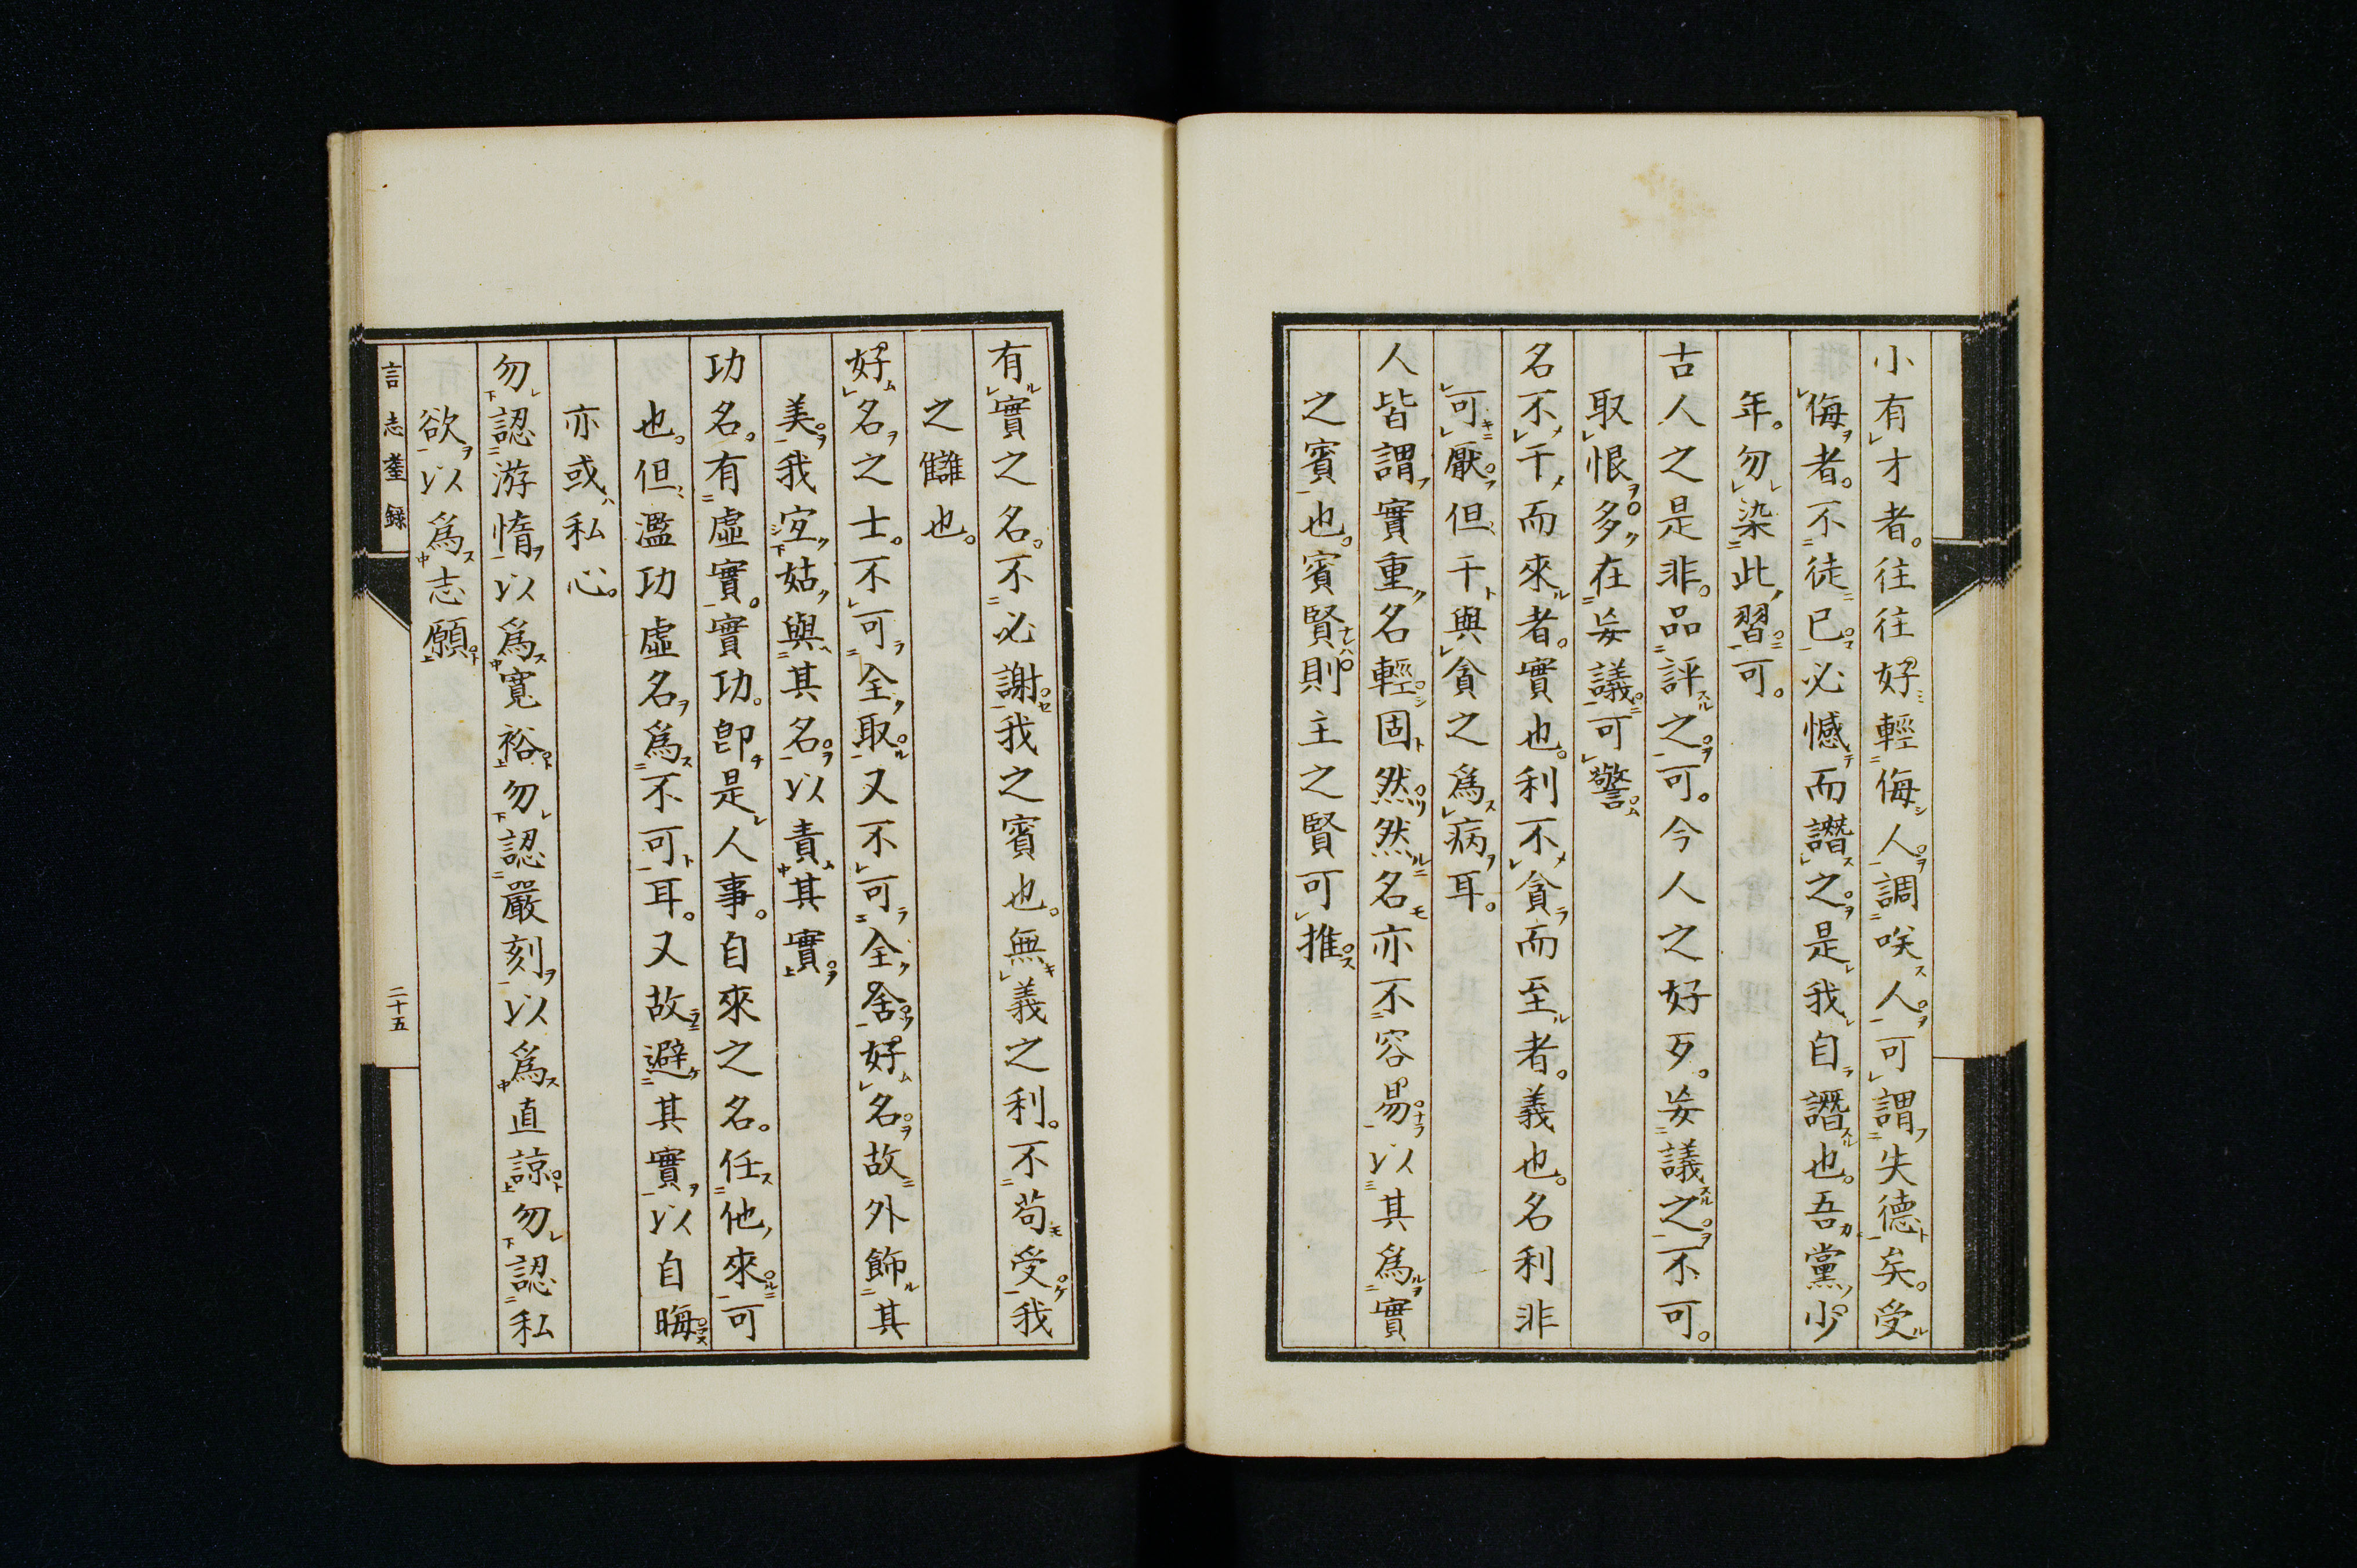 小有才者。往往好輕侮人。調咲人。可謂失德矣。受
侮者。不徒已。必憾而譖之。是我自譖也。吾黨少
年。勿染此習可。
古人之是非。品評之可。今人之好歹。妄議之不可。
取恨多在妄議。可警。
名不干而來者。實也。利不貪而至者。義也。名利非
可厭。但干與貪之爲病耳。
人皆謂實重名輕。固然。然名亦不容易。以其爲實
之賓也。賓賢則主之賢可推。
有實之名。不必謝。我之賓也。無義之利。不苟受。我
之讎也。
好名之士。不可全取。又不可全舍。好名。故外飾其
美。我宐姑與其名。以責其實。
功名。有虛實。實功。卽是人事。自來之名。任他來。可
也。但濫功虛名。爲不可耳。又故避其實。以自晦。
亦或私心。
勿認游惰以爲寬裕。勿認嚴刻以爲直諒。勿認私
欲以爲志願。
言志耋録
二十五